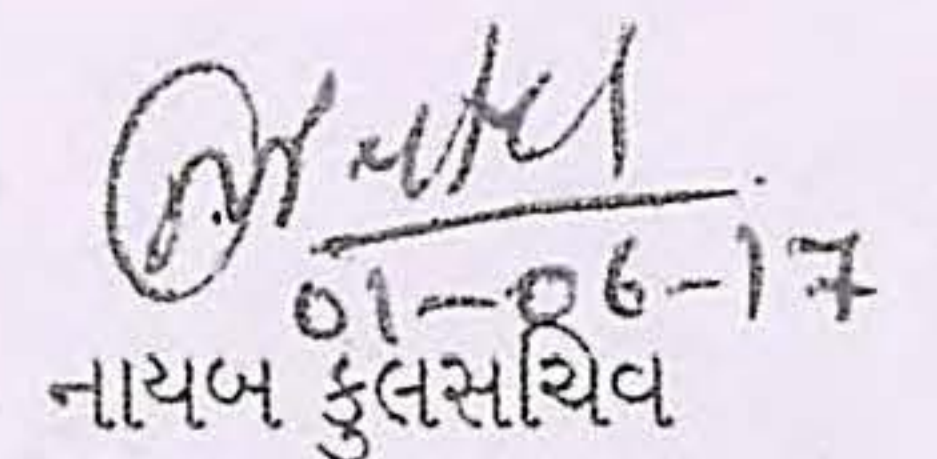 01-06-17
નાયબ કુલસચિવ